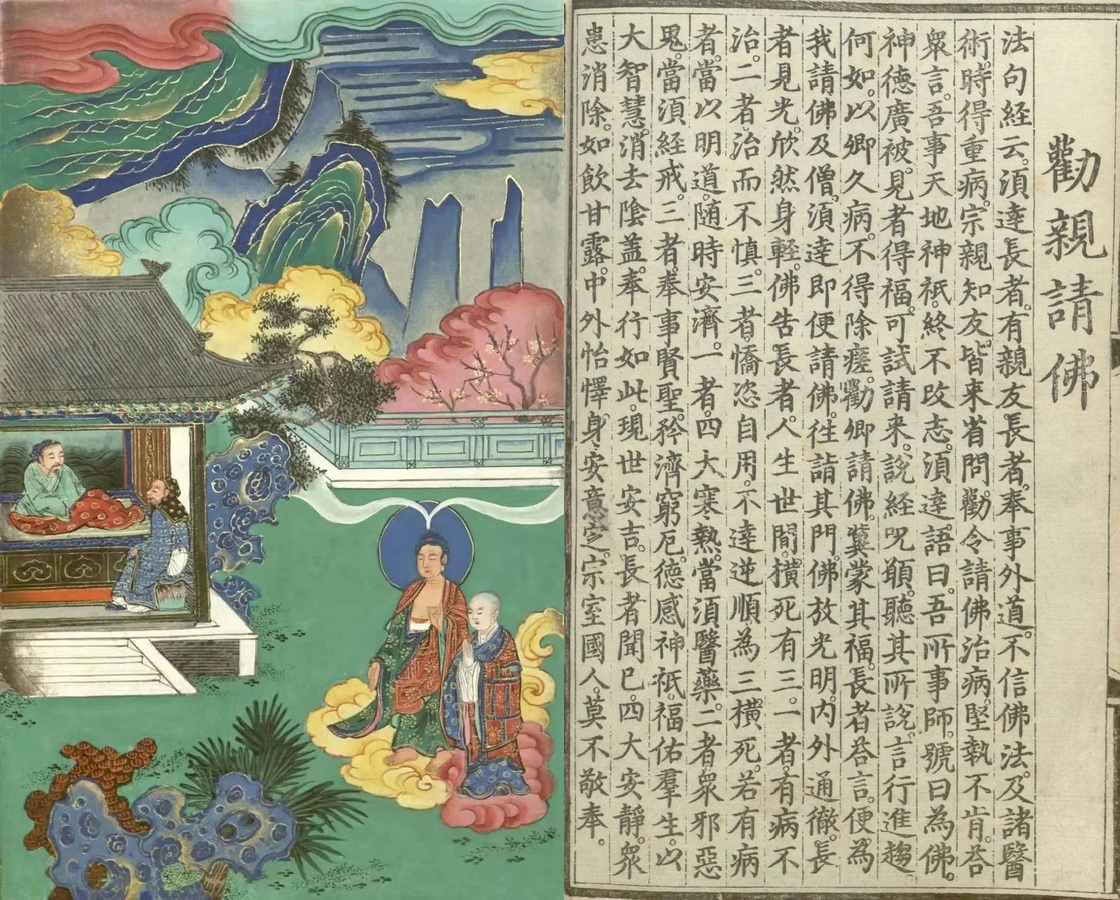 勸親請佛
法句經云。須達長者。有親友長者。奉事外道。不信佛法。及諸醫
術。時得重病。宗親知友。皆來省問。勸令請佛治病。堅執不肯。荅
衆言。吾事天地神祇。終不改志。須達語曰。吾所事師。號曰為佛。
神德廣被。見者得福。可試請來。說經呪願。聽其所說。言行進趨
何如。以卿久病。不得除瘥。勸卿請佛。冀蒙其福。長者荅言。便為
我請佛及僧。須達即便請佛。往詣其門。佛放光明。內外通徹。長
者見光。欣然身輕。佛告長者。人生世間。橫死有三。一者有病不
治。二者治而不慎。三者憍恣自用。不達逆順。為三橫死。若有病
者。當以明道。隨時安濟。一者。四大寒熱。當須醫藥。二者。衆邪惡
鬼。當須經戒。三者。奉事賢聖。矜濟窮厄。德感神祇。福佑羣生。以
大智慧。消去陰蓋。奉行如此。現世安吉。長者聞已。四大安靜。衆
患消除。如飲甘露。中外怡懌。身安意定。宗室國人。莫不敬奉。